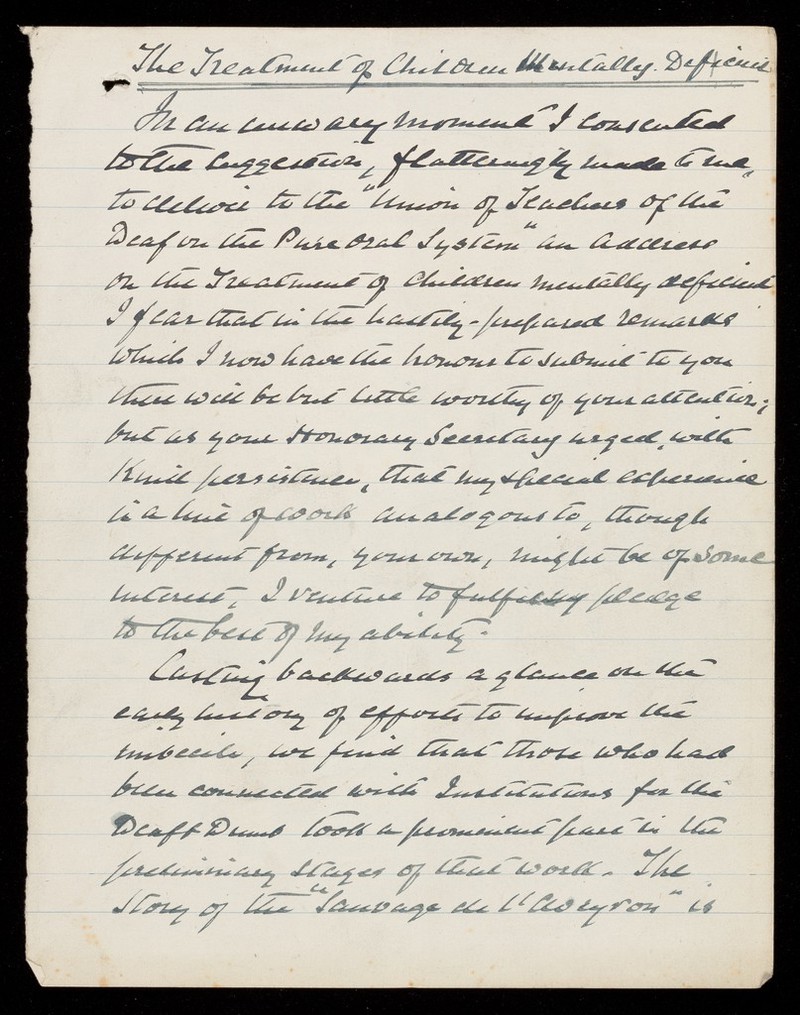 The Treatment of Children Mentally Deficient
In an unwary moment I consented
to the suggestion, flatteringly made to me,
to deliver to the "Union of Teachers of the
Deaf on the Pure Oral System" an Address
on the Treatment of Children mentally deficient
I fear that in the hastily-prepared remarks
which I now have the honour to submit to you
there will be but little worthy of your attention;
but as your Honorary Secretary urged, with
kind persistence, that my special experience
in a line of work analogous to, though
different from, your own, might be of some
interest, I venture to fulfil my pledge
to the best of my ability.
Casting backwards a glance on the
early history of efforts to improve the
imbecile, we find that those who had
been connected with Institutions for the
Deaf & Dumb took a prominent part in the
preliminary stages of that work. The
Story of the "Sauvage de l'Aveyron" is